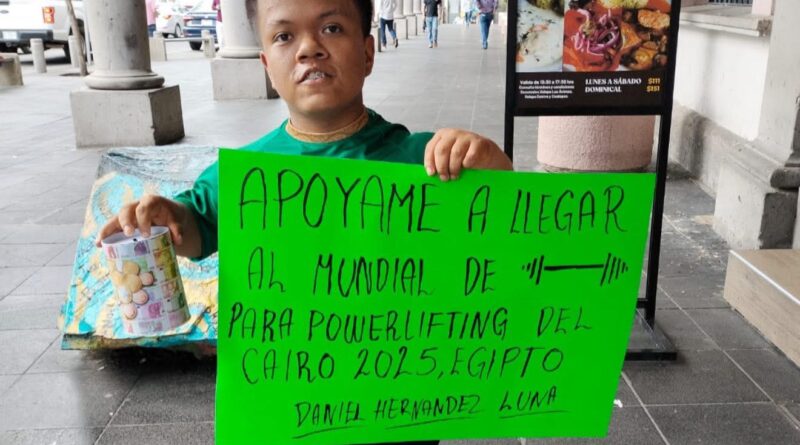 Válido de 13:30 a 17:30
LUNES A SÁBADO $111
DOMINICAL $151
APOYAME A LLEGAR
AL MUNDIAL DE
PARA POWERLIFTING DEL
CAIRO 2025, EGIPTO
DANIEL HERNANDEZ LUNA